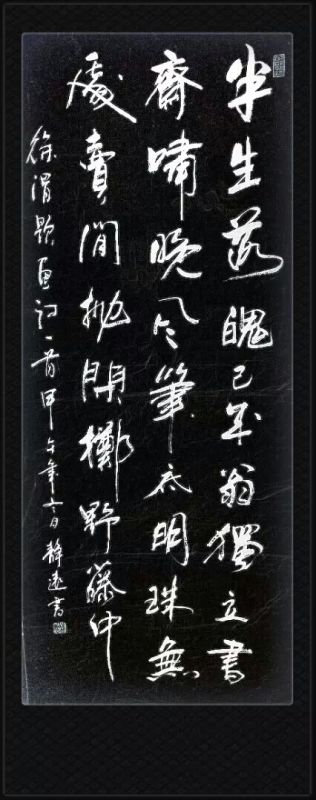 半生落魄已成翁獨立書
齋嘯晚风筆底明珠無
處賣閒抛閒擲野藤中
徐渭題画詩一首甲午年六月静遠書